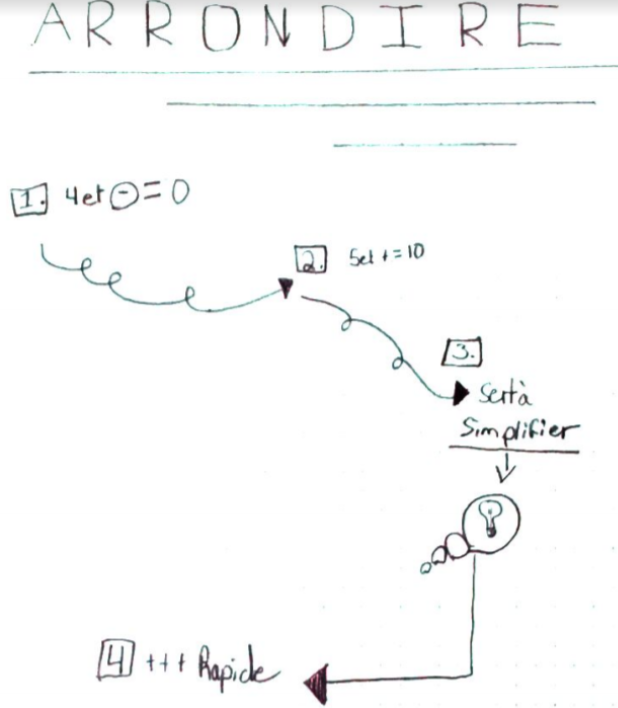 ARRONDIRE
1. 4et ⊖=0
2. 5et +=10
3.
Sert à
Simplifier
4 +++ Rapide